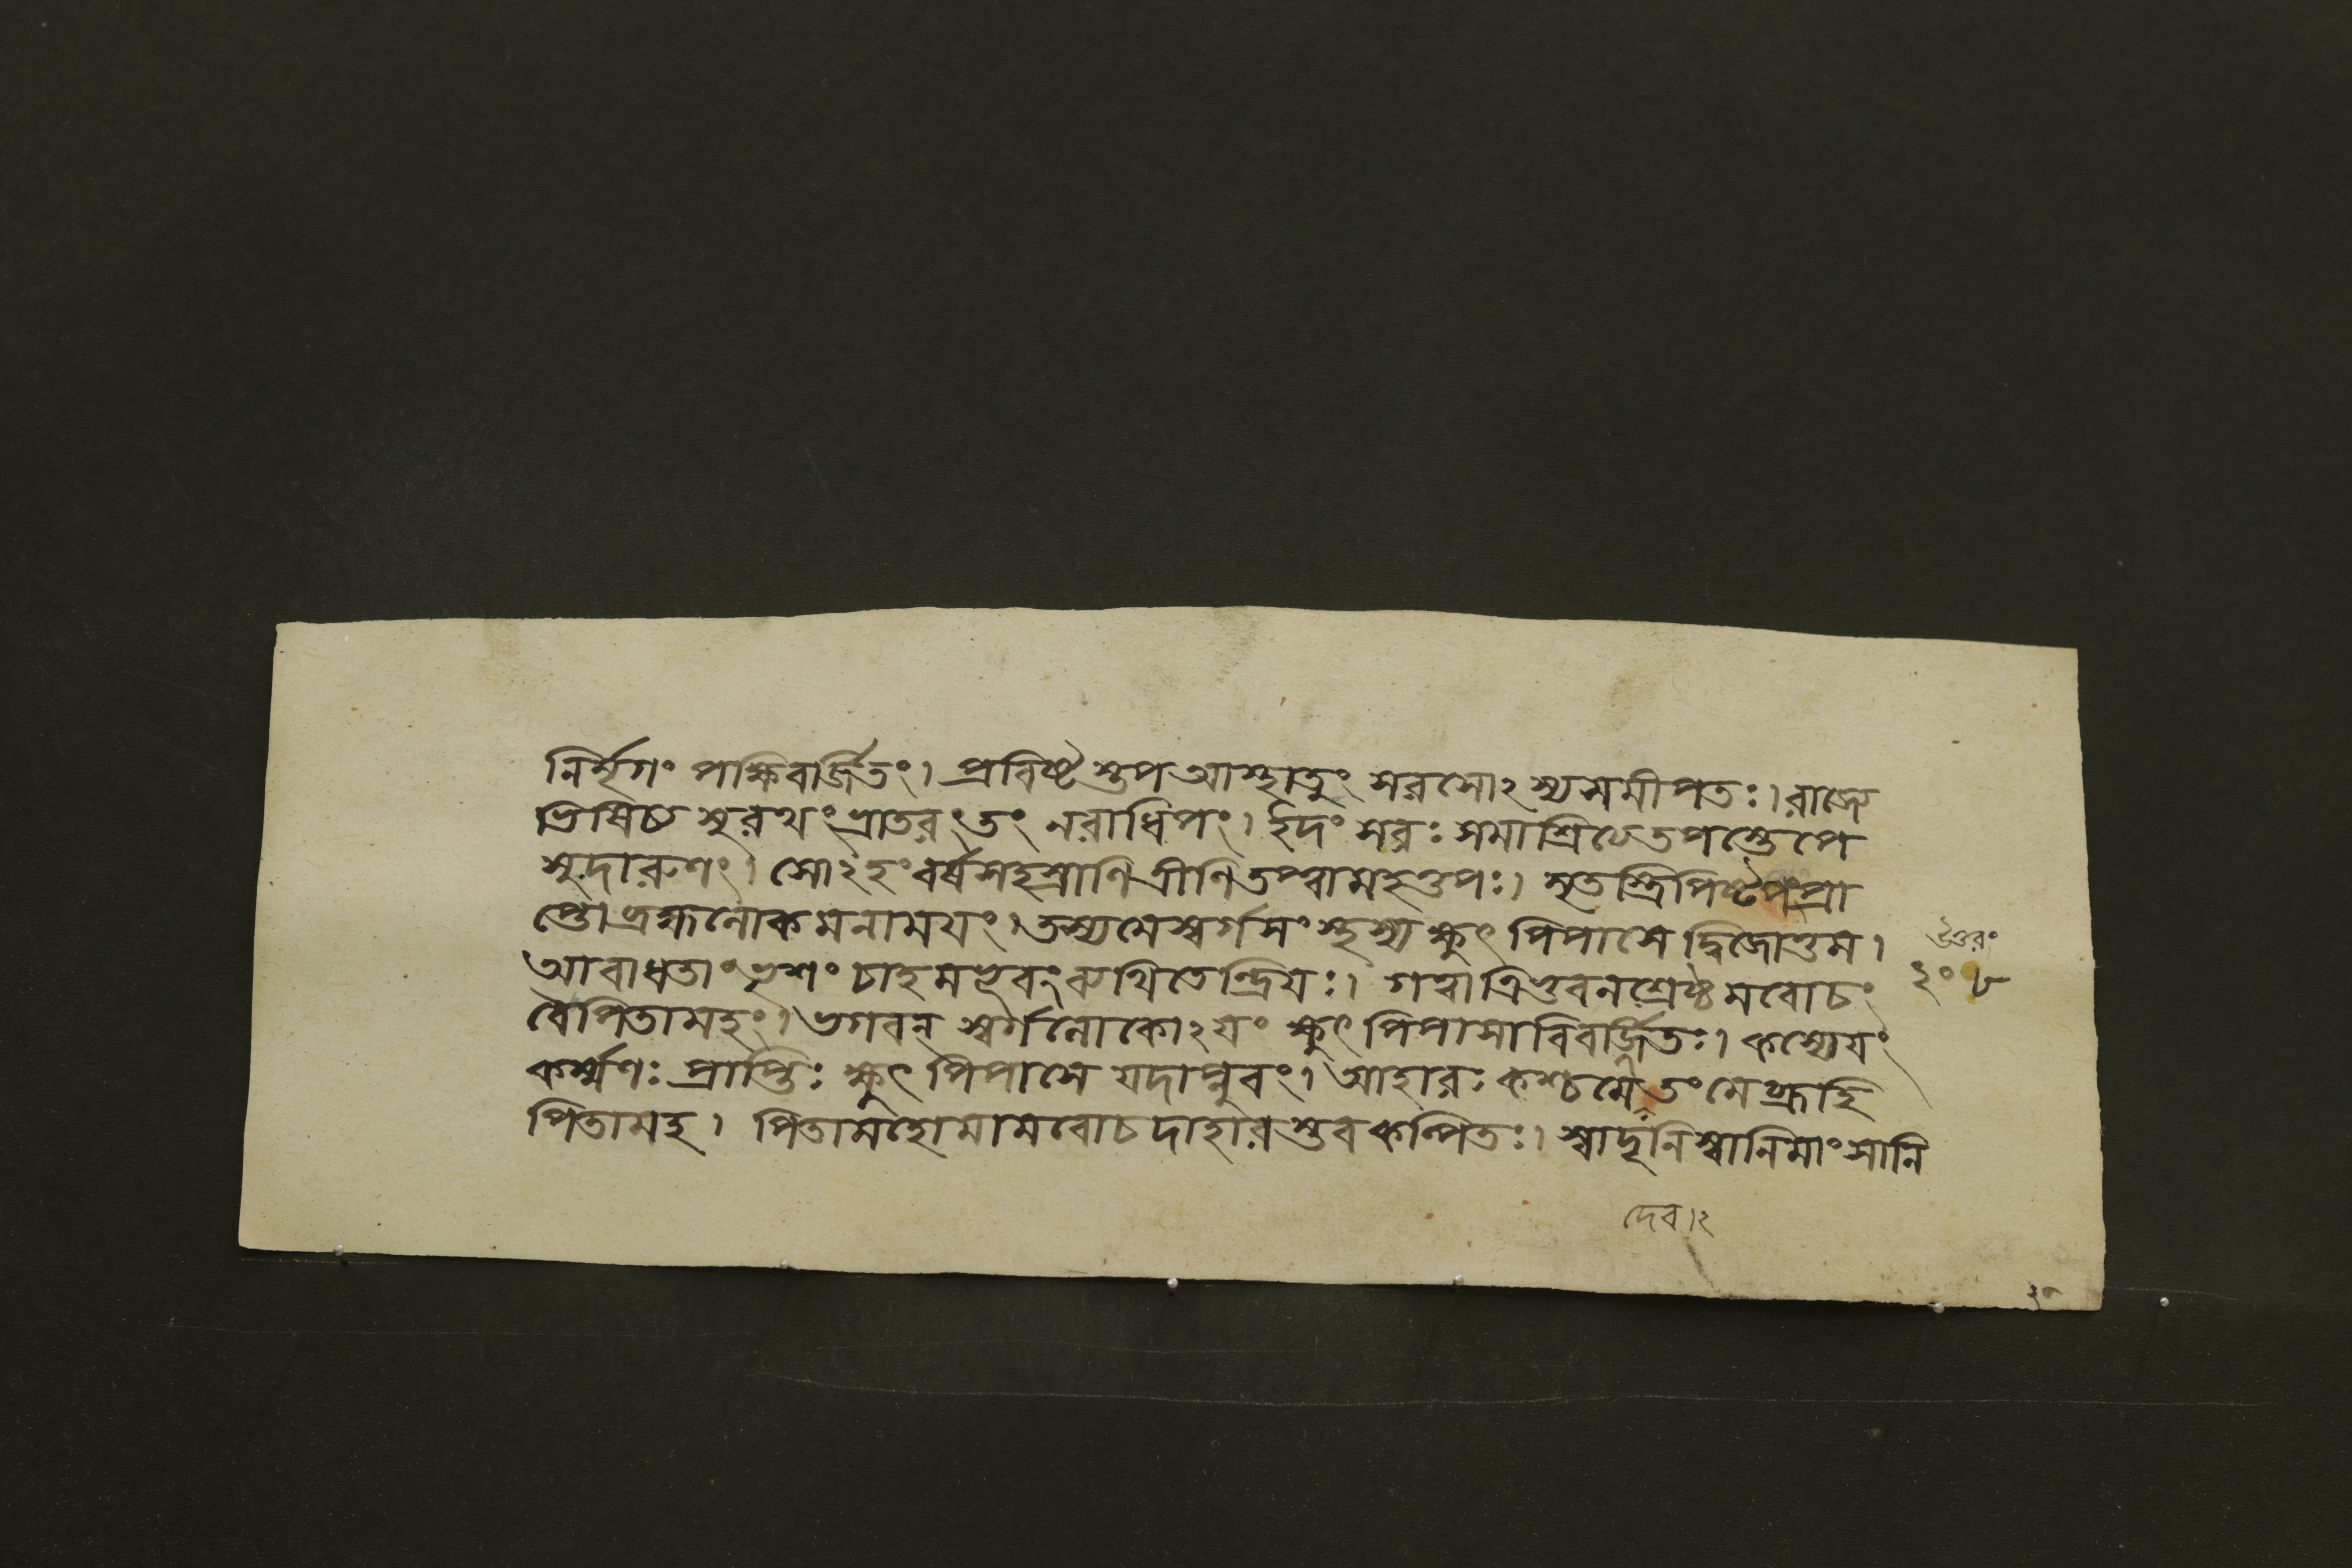 নির্মৃগং পক্ষিবর্জিতং। প্রবিষ্টস্তুপ আস্থাতুং সরসোঽস্য সমীপতঃ। রাজ্যে
ভিষিচ্য সুরথং ভ্রাতরং তং নরাধিপং। ইদং সরঃ সমাশ্রিত্য তপস্তেপে
সুদারুণং। সোঽহং বর্ষসহস্রাণি ত্রীণি তপ্ত্বা মহত্তপঃ। মৃতস্ত্রিপিষ্টপং প্রা
প্তো ব্রহ্মলোকমনাময়ং। তস্য মে স্বর্গসংস্থস্য ক্ষুৎ পিপাসে দ্বিজোত্তম।
আবাধতাং ভৃশং চাহমভুবং ব্যথিতেন্দ্রিয়ঃ। গত্বা ত্রিভুবনশ্রেষ্ঠমবোচং
বৈ পিতামহং। ভগবন্ স্বর্গলোকোঽয়ং ক্ষুৎ পিপাসাবিবর্জিতঃ। কস্যেয়ং
কর্ম্মণঃ প্রাপ্তিঃ ক্ষুৎ পিপাসে যদাপ্নুবং। আহারঃ কশ্চ মে তং মে ব্রূহি
পিতামহ। পিতামহো মামবোচদাহারস্তব কল্পিতঃ। স্বাদূনি স্বানি মাংসানি
উত্তরং
২০৮
দেব।২